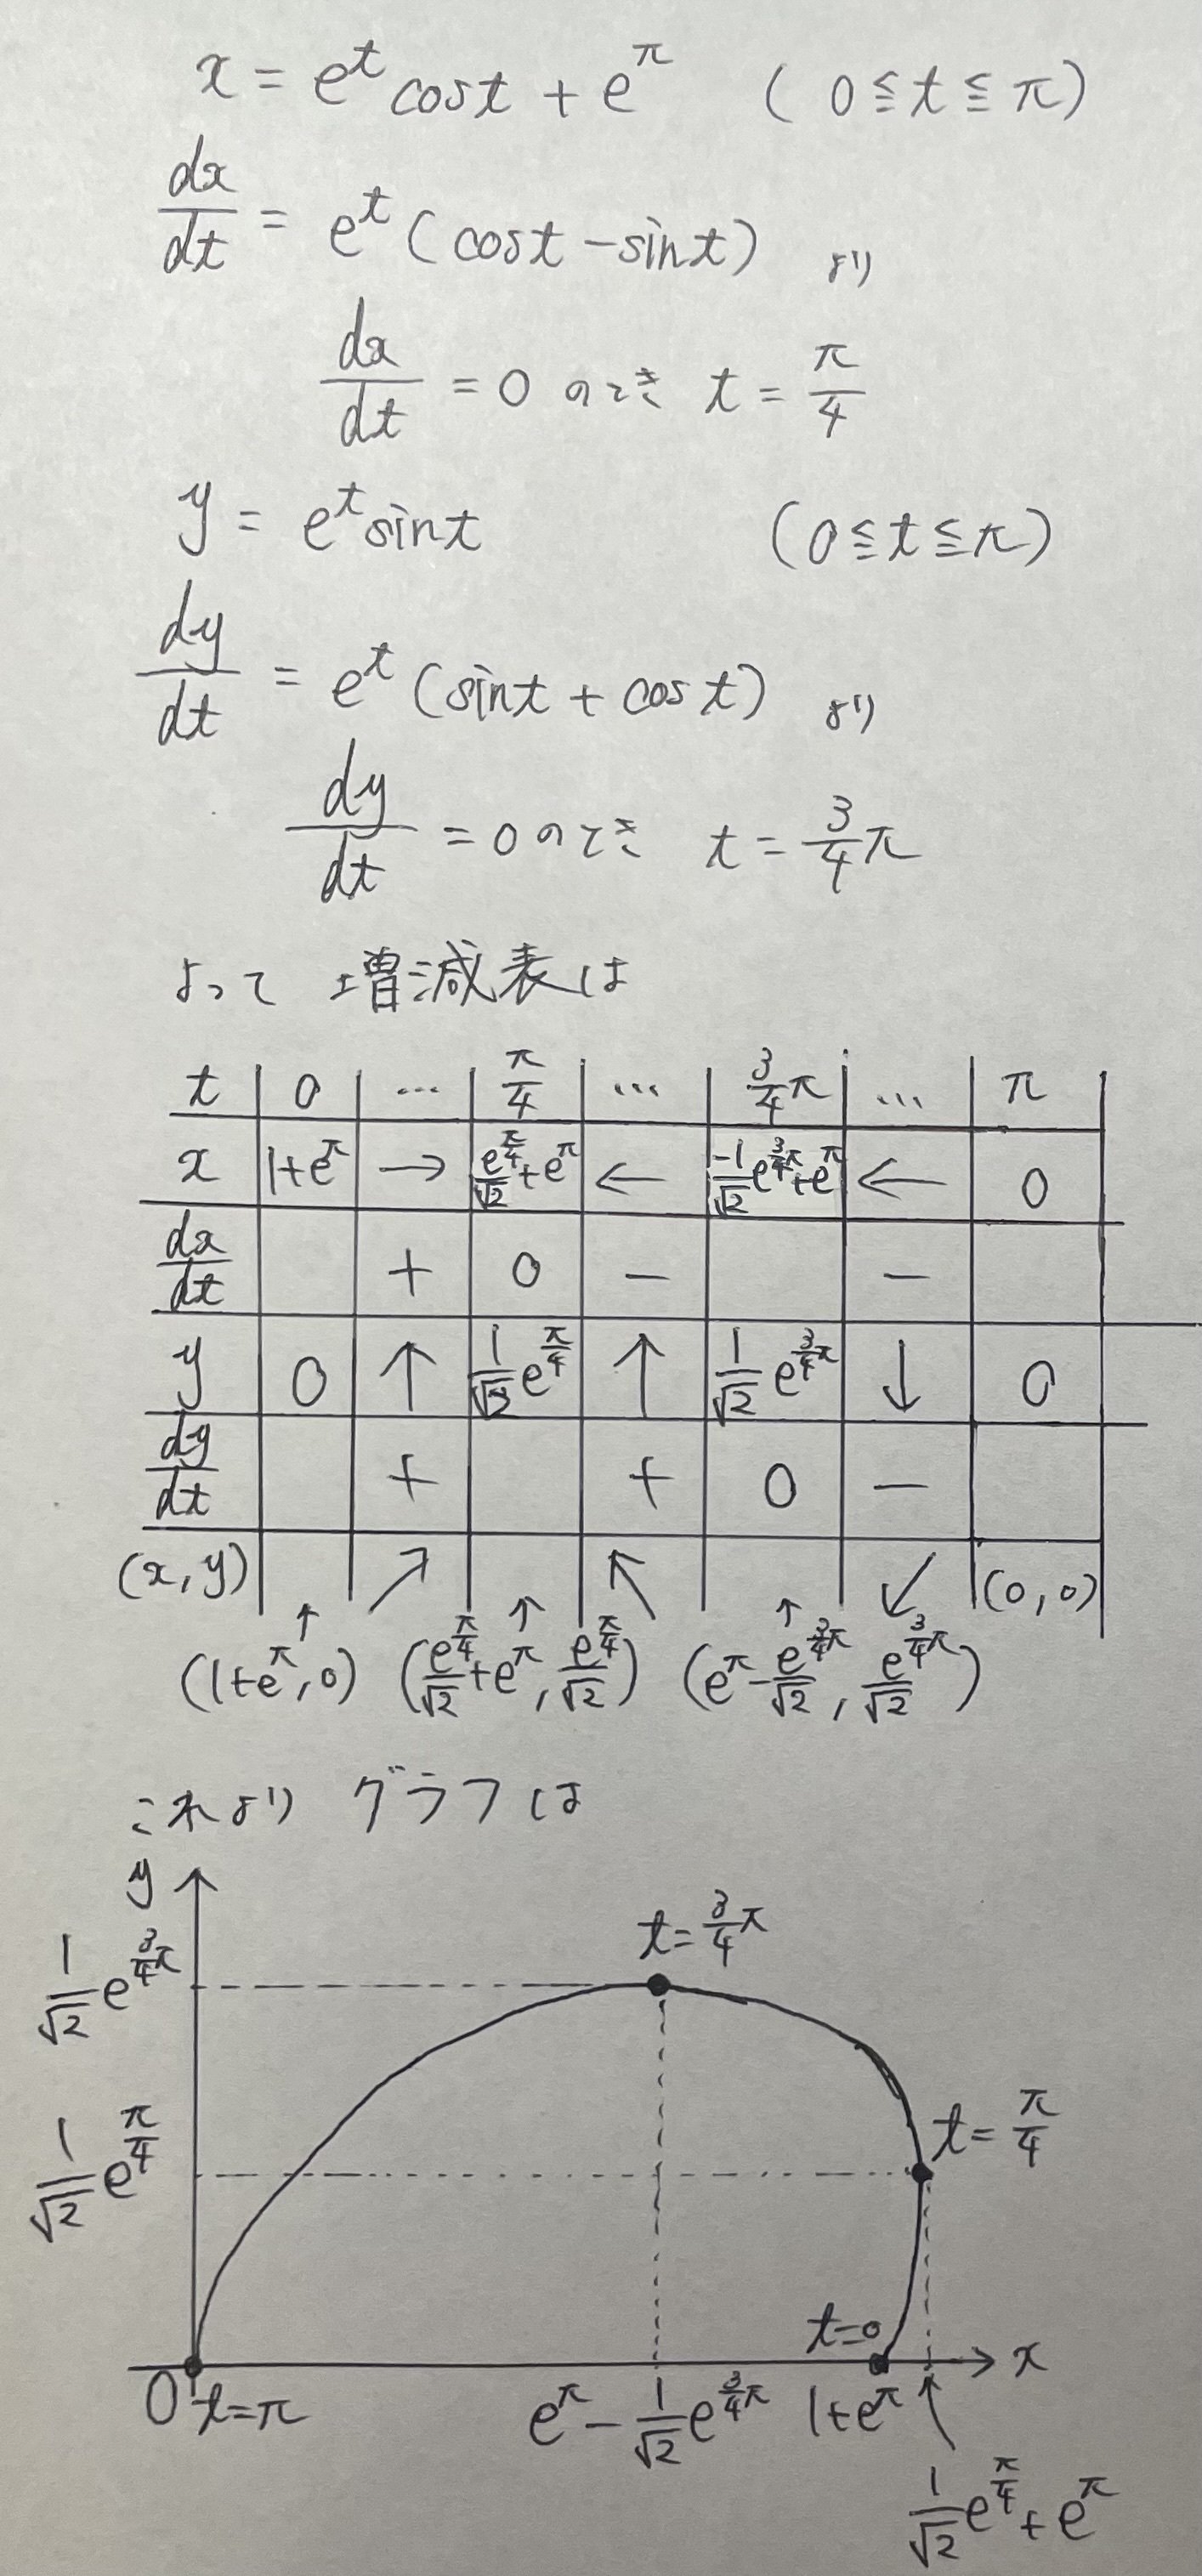 x = e^t cost + e^π (0 ≦ t ≦ π)
dx/dt = e^t (cost − sint) より
dx/dt = 0 のとき t = π/4
y = e^t sint (0 ≦ t ≦ π)
dy/dt = e^t (sint + cost) より
dy/dt = 0 のとき t = 3/4 π
よって 増減表は
t | 0 | … | π/4 | … | 3/4 π | … | π
x | 1+e^π | → | e^(π/4)/√2 + e^π | ← | -1/√2 e^(3/4 π) + e^π | ← | 0
dx/dt | | + | 0 | − | | − |
y | 0 | ↑ | 1/√2 e^(π/4) | ↑ | 1/√2 e^(3/4 π) | ↓ | 0
dy/dt | | + | | + | 0 | − |
(x, y) | ↑ | ↗ | ↑ | ↖ | ↑ | ↙ | (0, 0)
(1+e^π, 0) (e^(π/4)/√2 + e^π, e^(π/4)/√2) (e^π − e^(3/4 π)/√2, e^(3/4 π)/√2)
これより グラフは
y
t = 3/4 π
1/√2 e^(3/4 π)
t = π/4
1/√2 e^(π/4)
t=0
x
O t=π
e^π − 1/√2 e^(3/4 π) 1+e^π ↑
1/√2 e^(π/4) + e^π